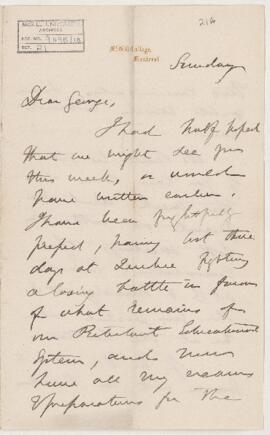 McGILL UNIVERSITY
ARCHIVES
ACC. NO.
REF. 21
216
McGill College,
Montreal
Sunday
Dear George,
I had half hoped
that we might see you
this week, or would
have written earlier.
I have been frightfully
pressed, having lost three
days at Quebec fighting
a losing battle in favour
of what remains of
our Protestant Educational
System, and now
have all my
preparations for the